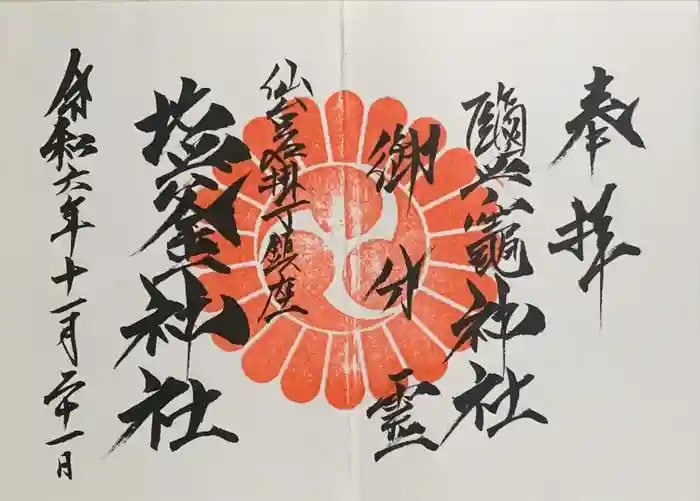 奉拝
鹽竈神社
御分霊
仙台荒掛丁鎮座
塩釜神社
令和六年十一月二十一日